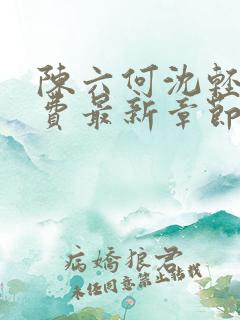 陳六何沈輕
費最新章節
病嬌狼君
未经同意禁止转载